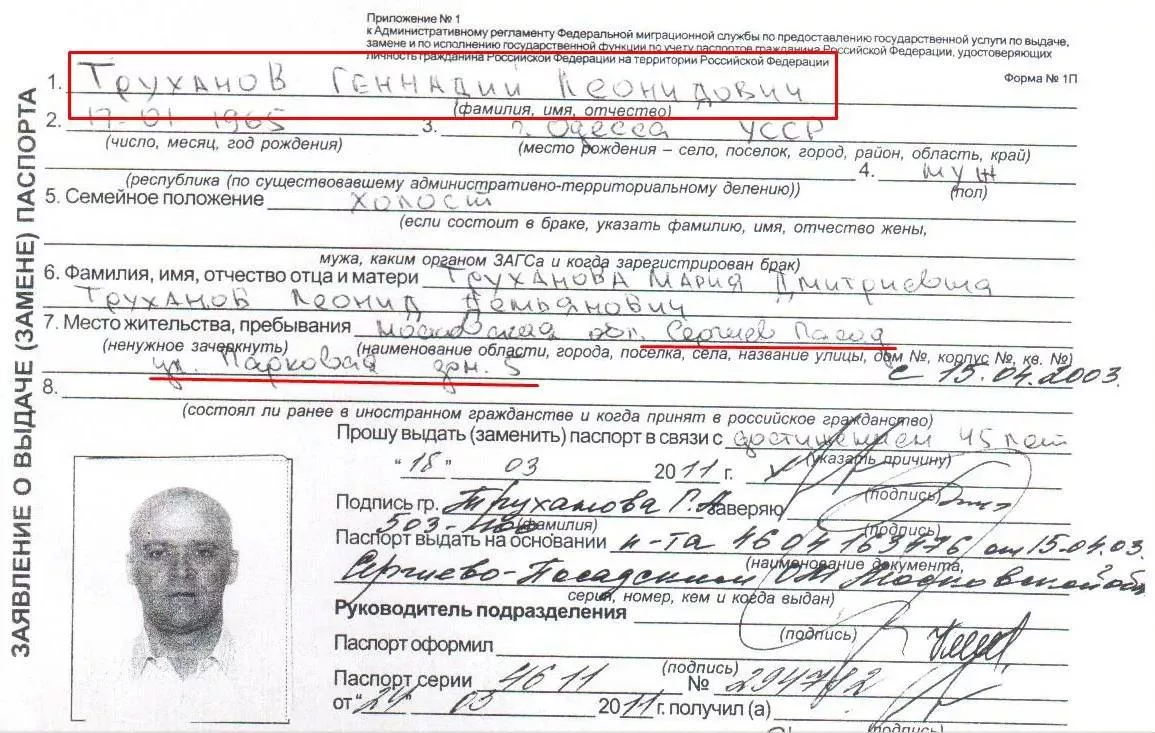 Приложение № 1
к Административному регламенту Федеральной миграционной службы по предоставлению государственной услуги по выдаче,
замене и по исполнению государственной функции по учету паспортов гражданина Российской Федерации, удостоверяющих
личность гражданина Российской Федерации на территории Российской Федерации
Форма № 1П
ЗАЯВЛЕНИЕ О ВЫДАЧЕ (ЗАМЕНЕ) ПАСПОРТА
1. Труханов Геннадий Леонидович
(фамилия, имя, отчество)
2. 17-01 1965 3. г. Одесса УССР
(число, месяц, год рождения) (место рождения – село, поселок, город, район, область, край)
4. муж
(республика (по существовавшему административно-территориальному делению)) (пол)
5. Семейное положение холост
(если состоит в браке, указать фамилию, имя, отчество жены,
мужа, каким органом ЗАГСа и когда зарегистрирован брак)
6. Фамилия, имя, отчество отца и матери Труханова Мария Дмитриевна
Труханов Леонид Демьянович
7. Место жительства, пребывания Московская обл. Сергиев Пасад
(ненужное зачеркнуть) (наименование области, города, поселка, села, название улицы, дом №, корпус №, кв. №)
ул. Парковая дом. 5 с 15.04.2003.
8.
(состоял ли ранее в иностранном гражданстве и когда принят в российское гражданство)
Прошу выдать (заменить) паспорт в связи с достижением 45 лет
(указать причину)
"18" 03 2011 г.
(подпись)
Подпись гр. Труханова Г.Л. заверяю
503- (фамилия) (подпись)
Паспорт выдать на основании п-та 4604 163476 от 15.04.03.
(наименование документа,
Сергиево-Посадским ОМ Московской обл
серия, номер, кем и когда выдан)
Руководитель подразделения
(подпись)
Паспорт оформил
(подпись)
Паспорт серии 4611 № 294782
от "24" 03 2011 г. получил (а)
(подпись)